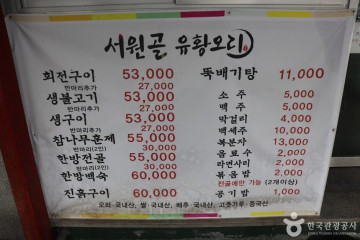 서원골 유황오리
회전구이 53,000
반마리추가 27,000
생불고기 53,000
반마리추가 27,000
생구이 53,000
반마리추가 27,000
참나무훈제 55,000
반마리(2인) 30,000
한방전골 55,000
반마리(2인) 30,000
한방백숙 60,000
진흙구이 60,000
뚝배기탕 11,000
소주 5,000
맥주 5,000
막걸리 4,000
백세주 10,000
복분자 13,000
음료수 2,000
라면사리 2,000
볶음밥 2,000
전골에만 가능 (2개이상)
공기밥 1,000
오리·국내산, 쌀·국내산, 배추·국내산, 고춧가루·중국산
한국관광공사